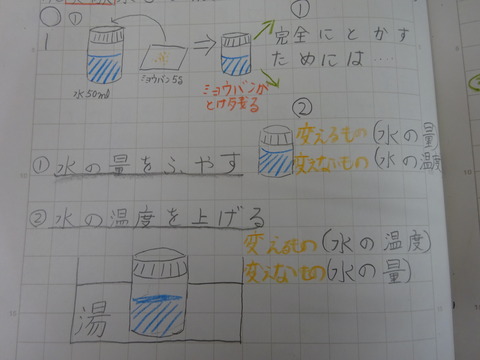 ①
水50ml
ミョウバン5g
⇒
ミョウバンが
とけ残る
①
完全にとかす
ためには…
②
①水の量をふやす
変えるもの(水の量)
変えないもの(水の温度
②水の温度を上げる
変えるもの(水の温度)
変えないもの(水の量)
湯